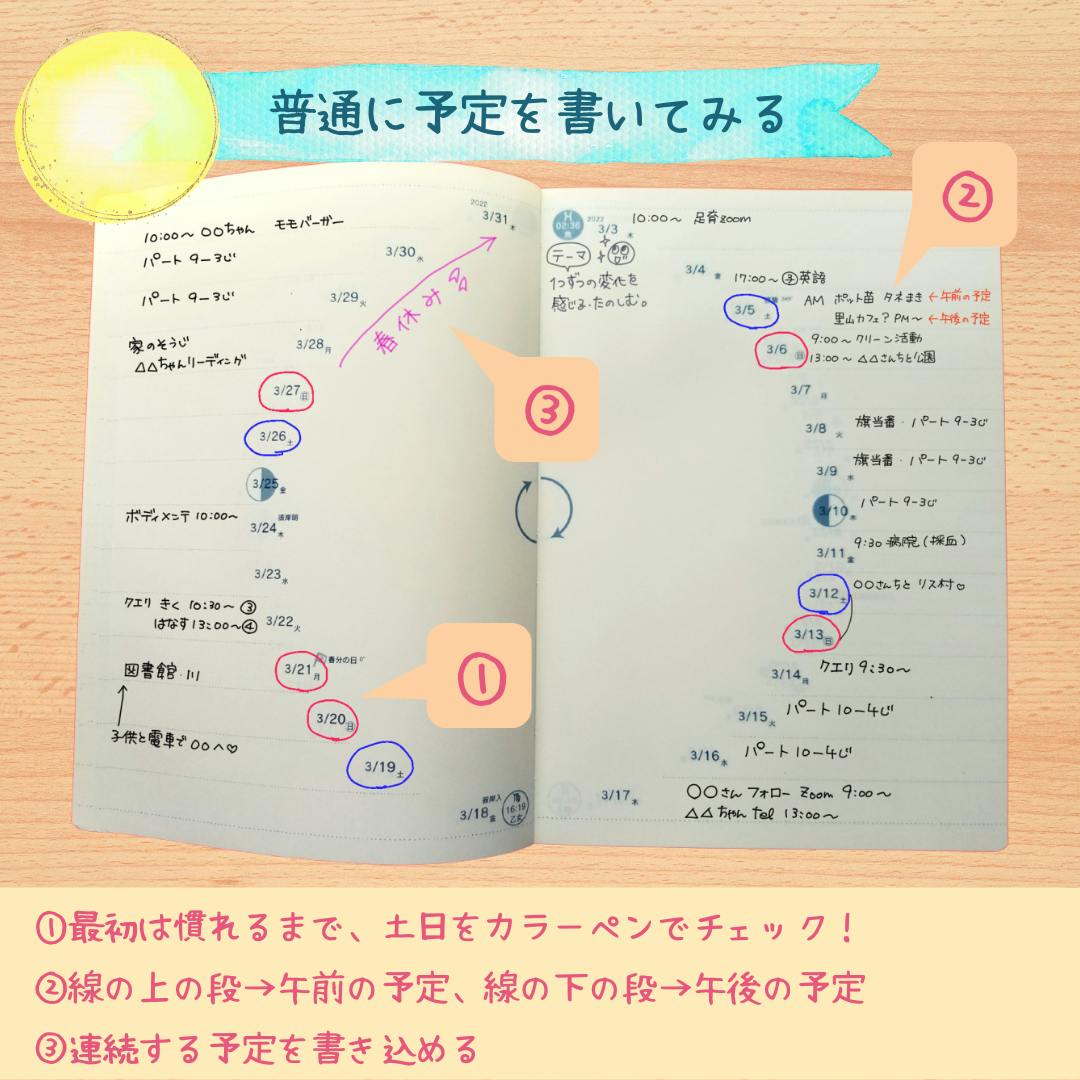 普通に予定を書いてみる
②
2022
3/31木
10:00〜 〇〇ちゃん モモバーガー
パート 9-3じ
3/30水
パート 9-3じ
3/29火
家のそうじ
△△ちゃんリーディング
3/28月
春休み
3/27日
3/26土
3/25金
③
ボディメンテ 10:00〜
彼岸明
3/24木
3/23水
クエリ きく 10:30〜③
はなす13:00〜④
3/22火
図書館
3/21月
春分の日
①
3/20日
子供と電車で〇〇へ♡
3/19土
彼岸入
3/18金
16:19
乙女
02:36
2022
3/3木
10:00〜 足育zoom
テーマ
1つずつの変化を
感じる・たのしむ。
3/4金
17:00〜③英語
3/5土
AM ポット苗 タネまき ←午前の予定
里山カフェ? PM〜 ←午後の予定
3/6日
9:00〜クリーン活動
13:00〜 △△さんちと公園
3/7月
3/8火
旗当番・パート 9-3じ
3/9水
旗当番・パート 9-3じ
3/10木
パート 9-3じ
3/11金
9:30 病院(採血)
3/12土
〇〇さんちと リス村♡
3/13日
3/14月
クエリ 9:30〜
3/15火
パート 10-4じ
3/16水
パート 10-4じ
3/17木
〇〇さん フォロー Zoom 9:00〜
△△ちゃん Tel 13:00〜
①最初は慣れるまで、土日をカラーペンでチェック!
②線の上の段→午前の予定、線の下の段→午後の予定
③連続する予定を書き込める